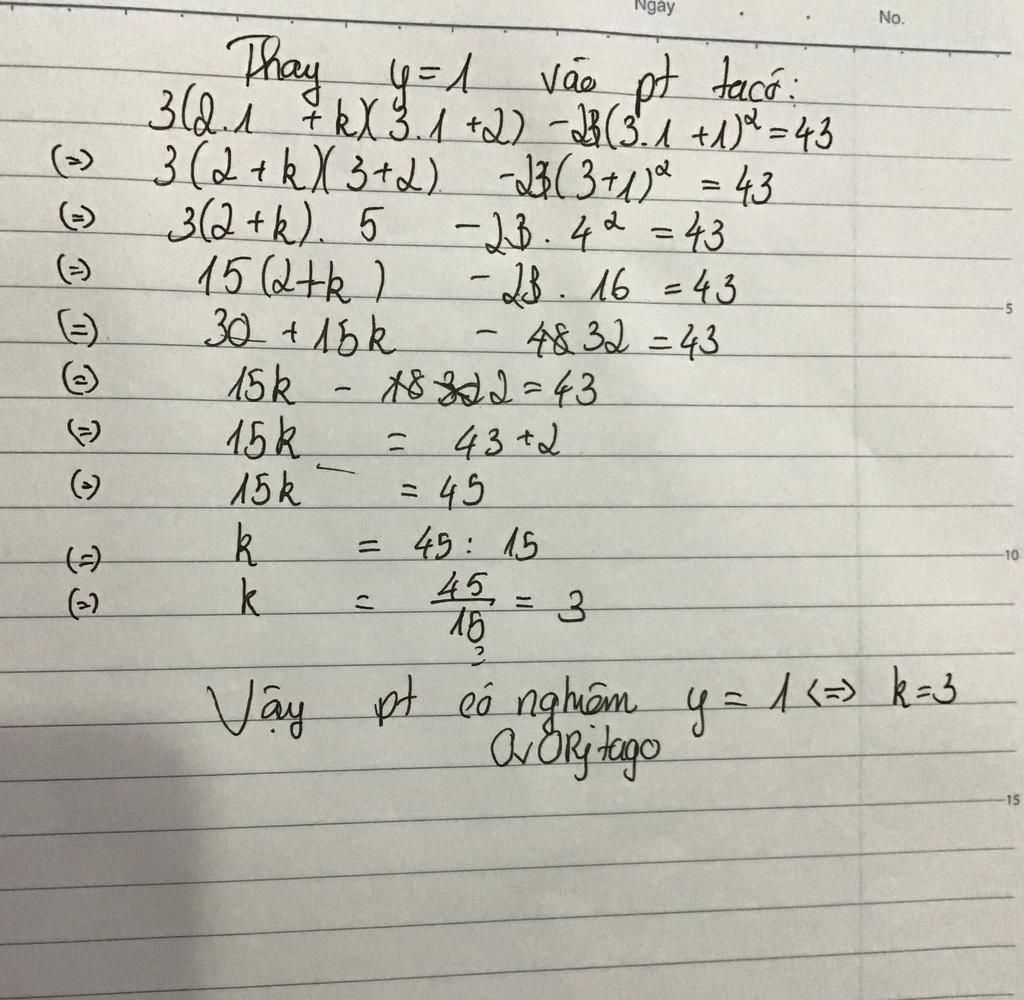 Ngày No.
Thay y=1 vào pt tacó:
3(2.1 +k)(3.1+2) -2(3.1+1)² =43
(=) 3(2+k)(3+2) -2(3+1)² =43
(=) 3(2+k). 5 -2. 4² =43
(=) 15(2+k) -2. 16 =43
(=) 30 + 15k - 32 =43
(=) 15k - 2 = 43
(=) 15k = 43+2
(=) 15k = 45
(=) k = 45: 15
(=) k = 45/15 = 3
Vậy pt có nghiệm y = 1 <=> k=3
5
10
15